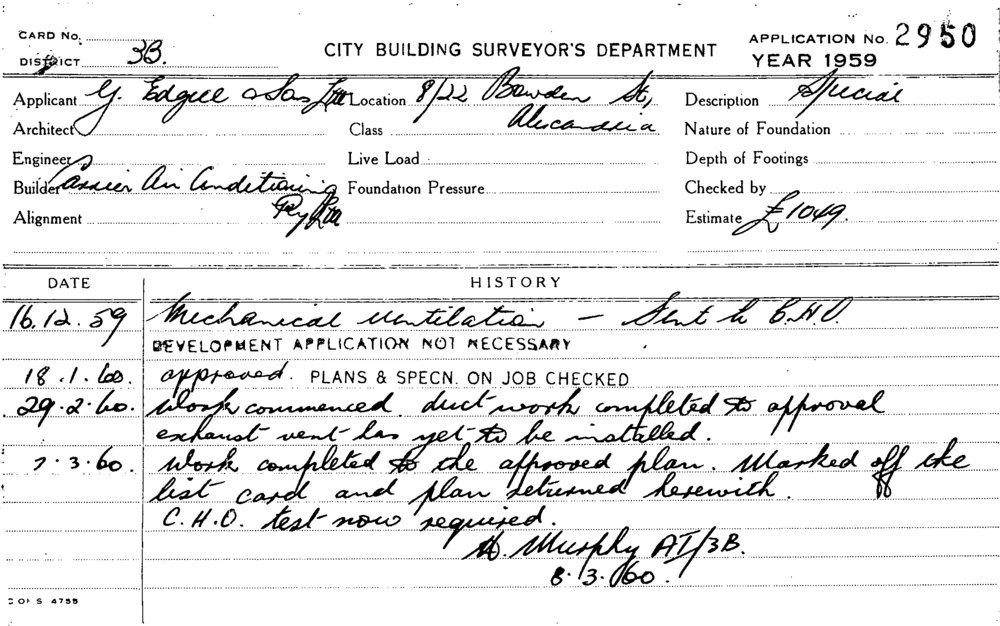 CARD No.
DISTRICT 3B.
CITY BUILDING SURVEYOR'S DEPARTMENT
APPLICATION No. 2950
YEAR 1959
Applicant G. Edgell & Sons Ltd Location 8/22 Bowden St, Description Special
Architect Class Alexandria Nature of Foundation
Engineer Live Load Depth of Footings
Builder Carrier Air Conditioning Foundation Pressure Checked by
Alignment Pty Ltd Estimate £1049.
DATE HISTORY
16.12.59 Mechanical ventilation – Sent to C.H.O.
DEVELOPMENT APPLICATION NOT NECESSARY
18.1.60. approved. PLANS & SPECN. ON JOB CHECKED
29.2.60. Work commenced. duct work completed to approval
exhaust vent has yet to be installed.
7.3.60. Work completed to the approved plan. Marked off the
list card and plan returned herewith.
C.H.O. test now required.
Murphy AI/3B.
8.3.60.
C OF S 4755